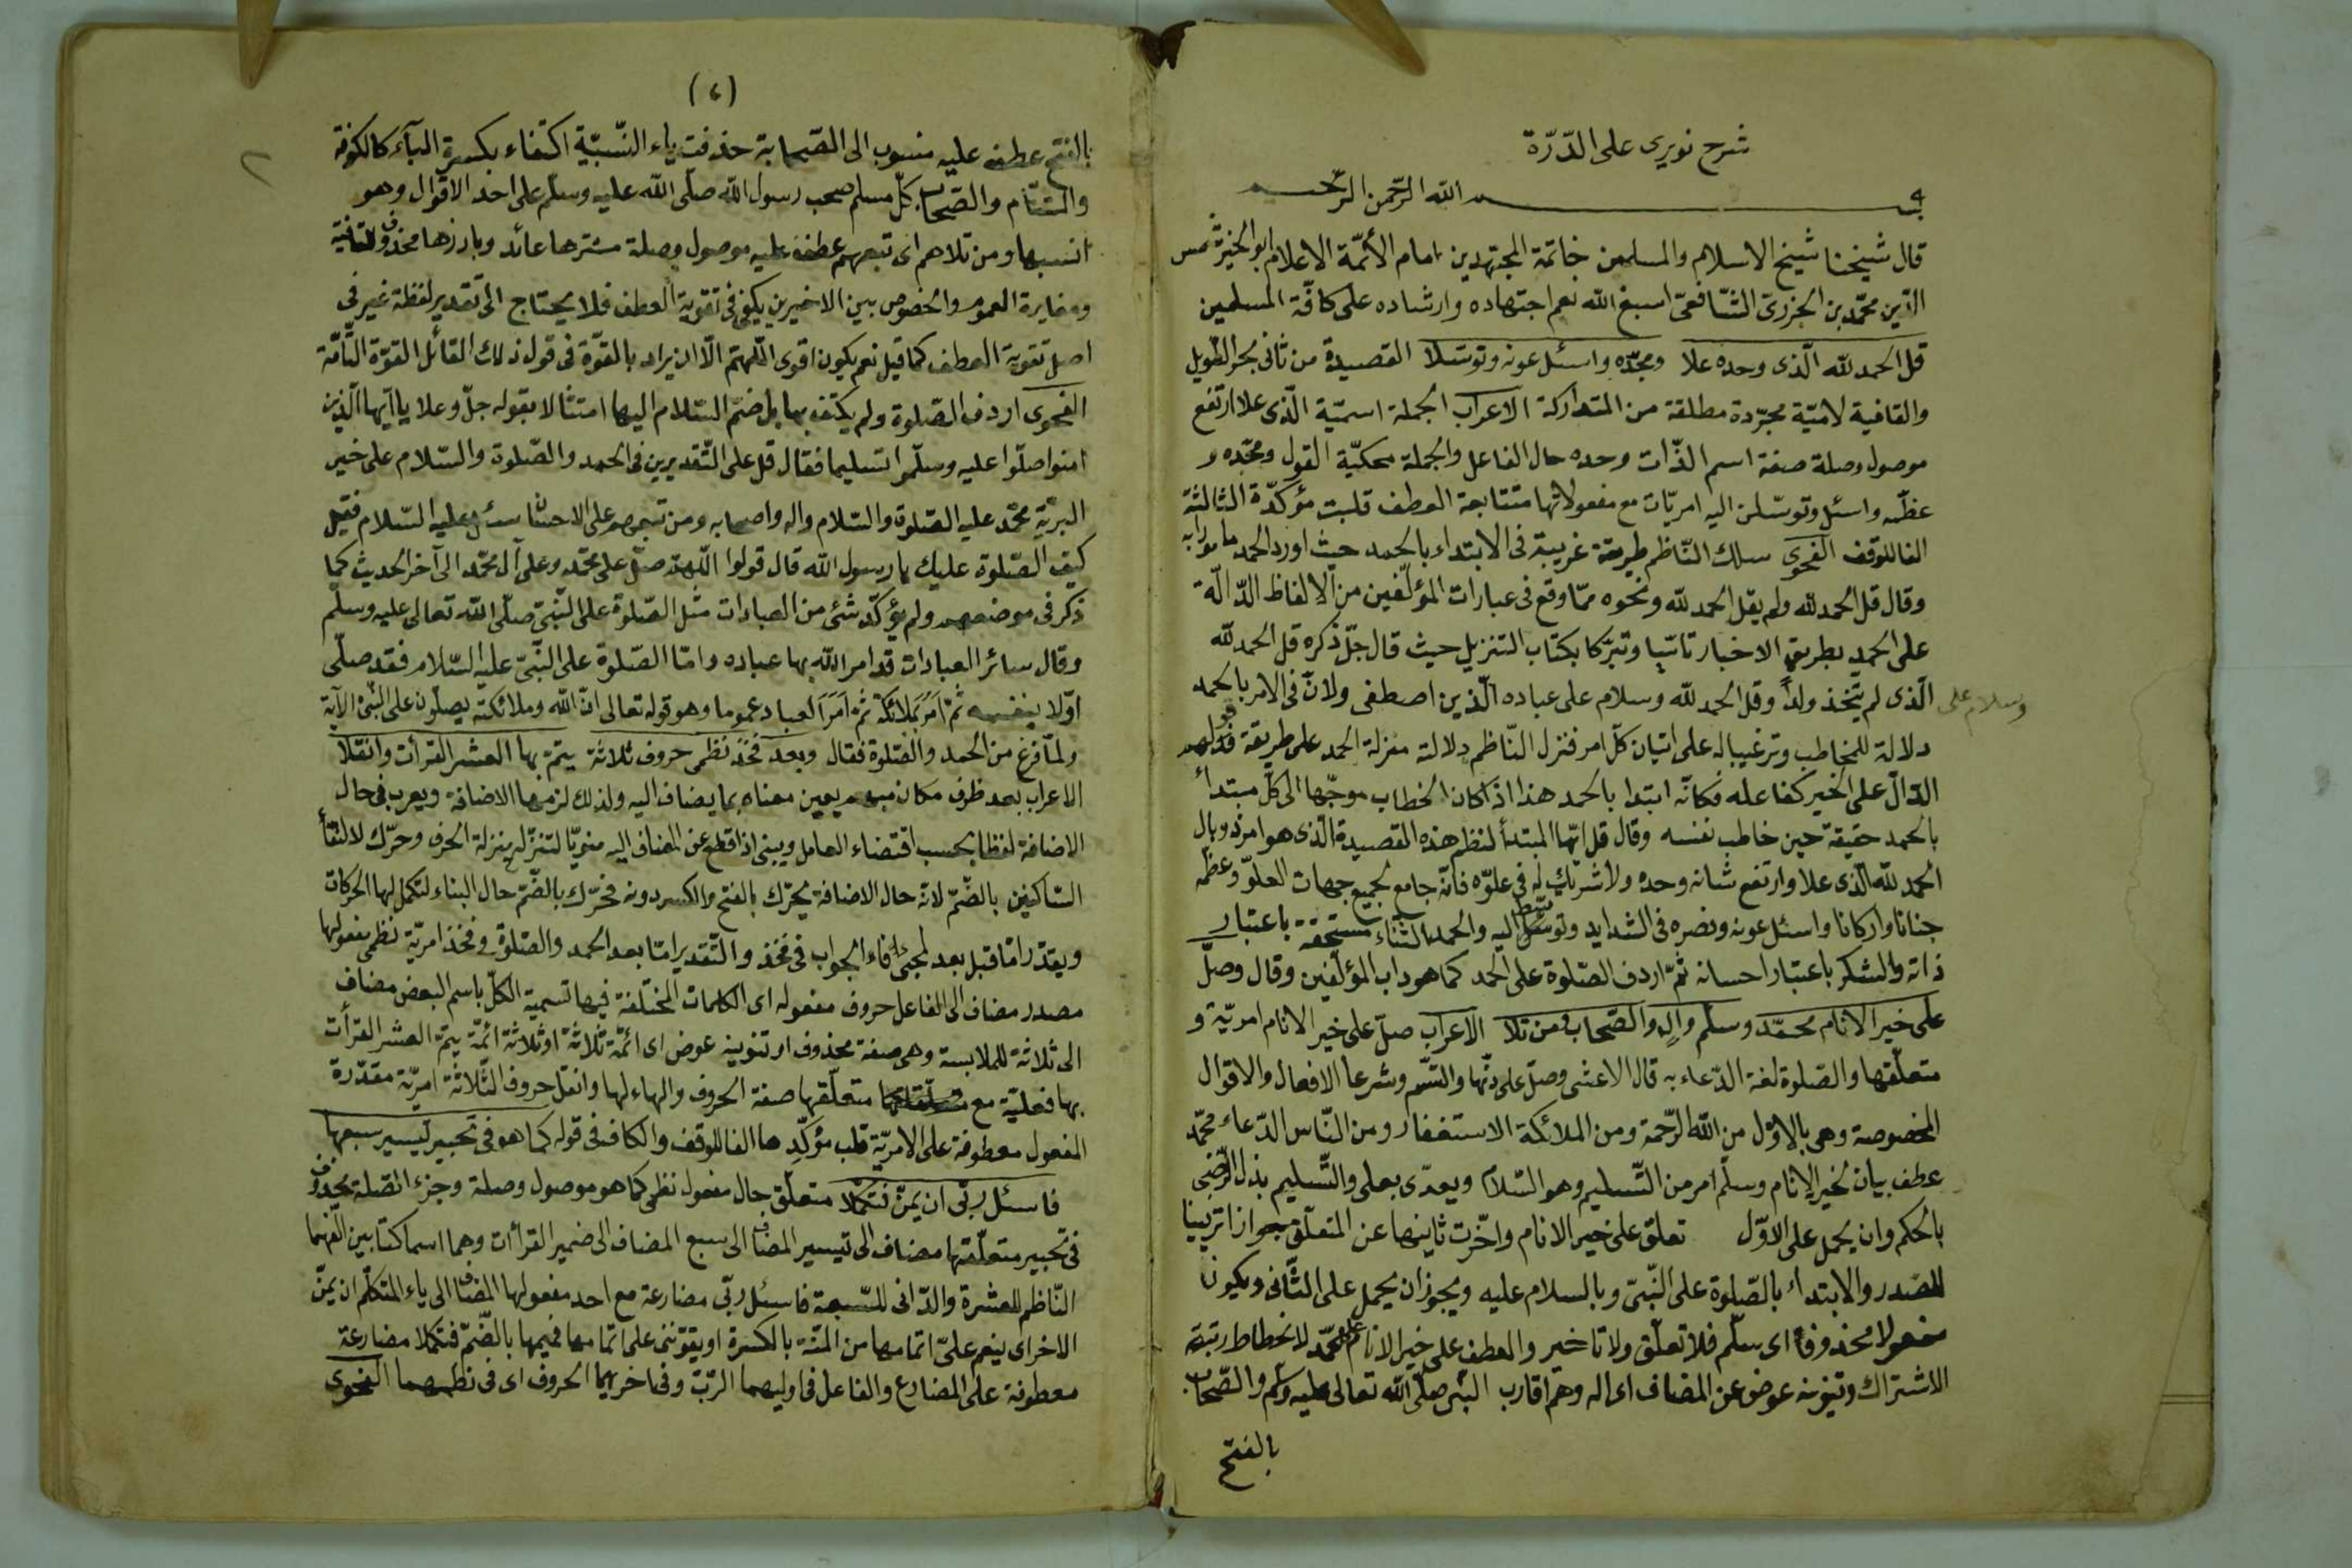 شرح نويرى على الدّرّة
بسم الله الرّحمن الرّحيم
قال شيخنا شيخ الاسلام والمسلمين خاتمة المجتهدين امام الأئمّة الاعلام ابو الخير شمس
الدّين محمّد بن الجزرىّ الشّافعىّ اسبغ الله نعم اجتهاده وارشاده على كافّة المسلمين
قل الحمد لله الّذى وحده علا ومجّده واسئل عونه وتوسّلا القصيدة من ثانى بحر الطّويل
والقافية لاميّة مجرّدة مطلقة من المتداركة الاعراب الجملة اسميّة الّذى علا ارتفع
موصول وصلة صفة اسم الذّات وحده حال الفاعل والجملة محكيّة القول ومجّده و
عظّمه واسئل وتوسّلن اليه امريّات مع مفعولاتها متتابعة العطف قلبت مؤكّدة الثالثة
الفا للوقف الفحوى سلك النّاظم طريقة غريبة فى الابتداء بالحمد حيث اورد الحمد مامورا به
وقال قل الحمد لله ولم يقل الحمد لله ونحوه ممّا وقع فى عبارات المؤلّفين من الالفاظ الدّالّة
على الحمد بطريق الاخبار تاسّيا وتبرّكا بكتاب التنزيل حيث قال جلّ ذكره قل الحمد لله
وسلام على
الّذى لم يتّخذ ولدا وقل الحمد لله وسلام على عباده الّذين اصطفى ولانّ فى الامر بالحمد
دلالة للمخاطب وترغيبا له على اتيان كلّ امر فنزل النّاظم دلالة منزلة الحمد على طريقة قولهم
الدّالّ على الخير كفاعله فكانّه ابتدا بالحمد هذا اذا كان الخطاب موجّها الى كلّ مبتدأ
بالحمد حقيقة حين خاطب نفسه وقال قل ايّها المبتدأ لنظم هذه القصيدة الّذى هو امر ذو بال
الحمد لله الّذى علا وارتفع شانه وحده ولا شريك له فى علوّه فانّه جامع لجميع جهات العلوّ وعظّمه
جنانا واركانا واسئل عونه ونصره فى الشدايد وتوسّل اليه والحمد الثناء مستحقة باعتبار
ذاته والشكر باعتبار احسانه ثمّ اردف الصّلوة على الحمد كما هو داب المؤلّفين وقال وصلّ
على خير الانام محمّد وسلّم وآله والصّحاب ومن تلا الاعراب صلّ على خير الانام امريّة و
متعلّقها والصّلوة لغة الدّعاء به قال الاعشى وصلّ على دنّها والتسم وشرعا الافعال والاقوال
المخصوصة وهى بالاوّل من الله الرّحمة ومن الملائكة الاستغفار ومن النّاس الدّعاء محمّد
عطف بيان لخير الانام وسلّم امر من التّسليم وهو السّلام ويعدّى بعلى والتّسليم بذل الرّضى
بالحكم وان يحمل على الاوّل تعلّق على خير الانام واخّرت ثانيها عن المتعلّق جوازا تزيينا
للصّدر والابتداء بالصّلوة على النّبىّ وبالسلام عليه ويجوز ان يحمل على الثّانى ويكون
مفعولا محذوفا اى سلّم فلا تعلّق ولا تاخير والعطف على خير الانام على محمّد لانحطاط رتبة
الاشتراك وتنوينه عوض عن المضاف اى اله وهم اقارب النّبى صلّى الله تعالى عليه وسلّم والصّحاب
بالفتح
(٢)
٢
بالفتح عطف عليه منسوب الى الصّحابة حذفت ياء النّسبيّة اكتفاء بكسرة الباء كالكوفة
والشّام والصّحاب كلّ مسلم صحب رسول الله صلّى الله عليه وسلّم على احد الاقوال وهو
انسبها ومن تلاهم اى تبعهم عطف عليه موصول وصلة مسترها عائد وبارزها محذوف للقافية
ومغايرة العموم والخصوص بين الاخيرين يكفى فى تقوية العطف فلا يحتاج الى تقدير لفظة غير فى
اصل تقوية العطف كما قيل نعم يكون اقوى اللّهمّ الّا ان يراد بالقوّة فى قول ذلك القائل القوّة التّامّة
الفحوى اردف الصّلوة ولم يكتف بها بل ضمّ السّلام اليها امتثالا بقوله جلّ وعلا يا ايّها الّذين
امنوا صلّوا عليه وسلّموا تسليما فقال قل على التّقديرين فى الحمد والصّلوة والسّلام على خير
البريّة محمّد عليه الصّلوة والسّلام واله واصحابه ومن تبعهم على الاحسان سئل عليه السّلام فقيل
كيف الصّلوة عليك يا رسول الله قال قولوا اللّهمّ صلّ على محمّد وعلى آل محمّد الى آخر الحديث كما
ذكر فى موضعه ولم يؤكّد شئ من العبادات مثل الصّلوة على النّبىّ صلّى الله تعالى عليه وسلّم
وقال سائر العبادات قد امر الله بها عباده وامّا الصّلوة على النّبىّ عليه السّلام فقد صلّى
اوّلا بنفسه ثمّ امر ملائكة ثمّ امر العباد عموما وهو قوله تعالى انّ الله وملائكته يصلّون على النّبىّ الآية
ولمّا فرغ من الحمد والصّلوة فقال وبعد فخذ نظمى حروف ثلاثة يتمّ بها العشر القرأت وانقلا
الاعراب بعد ظرف مكان مبهم يعيين معناه بما يضاف اليه ولذلك لزمها الاضافة ويعرب فى حال
الاضافة لفظا بحسب اقتضاء العامل ويبنى اذا قطع عن المضاف اليه منويّا لتنزّله منزلة الحرف وحرّك لالتقأ
السّاكنين بالضّمّ لانّه حال الاضافة يحرّك بالفتح والكسر دونه فحرّك بالضّمّ حال البناء لتكمل لها الحركات
ويقدّر امّا قبل بعد لمجئ فاء الجواب فى فخذ والتّقدير امّا بعد الحمد والصّلوة وفخذ امريّة نظمى مفعولها
مصدر مضاف الى الفاعل حروف مفعوله اى الكلمات المختلفة فيها تسمية الكلّ باسم البعض مضاف
الى ثلاثة للملابسة وهى صفة محذوف او تنوينه عوض اى ائمّة ثلاثة او ثلاثة ائمّة يتمّ العشر القرأت
بها فعليّة مع متعلّقها صفة الحروف والهاء لها وانقل حروف الثّلاثة امريّة مقدّرة
المفعول معطوفة على الامريّة قلب مؤكّدها الفا للوقف والكاف فى قوله كما هو فى تحبير تيسير سبعها
فاسئل ربّى ان يمنّ فتكملا متعلّق حال مفعول نظمى كما هو موصول وصلة وجزء الصّلة محذوف
فى تحبير متعلّقها مضاف الى تيسير المضاف الى سبع المضاف الى ضمير القرأت وهما اسما كتابين الّفهما
النّاظم للعشرة والدّانى للسّبعة فاسئل ربّى مضارعة مع احد مفعولها المضاف الى ياء المتكلّم ان يمنّ
الاخر اى ينعم علىّ اتمامها من المنّة بالكسرة او يقوّننى على اتمامها فيمها بالضّمّ فتكملا مضارعة
معطوفة على المضارع والفاعل فى اوليهما الرّبّ وفى اخريهما الحروف اى فى نظمهما الفحوى